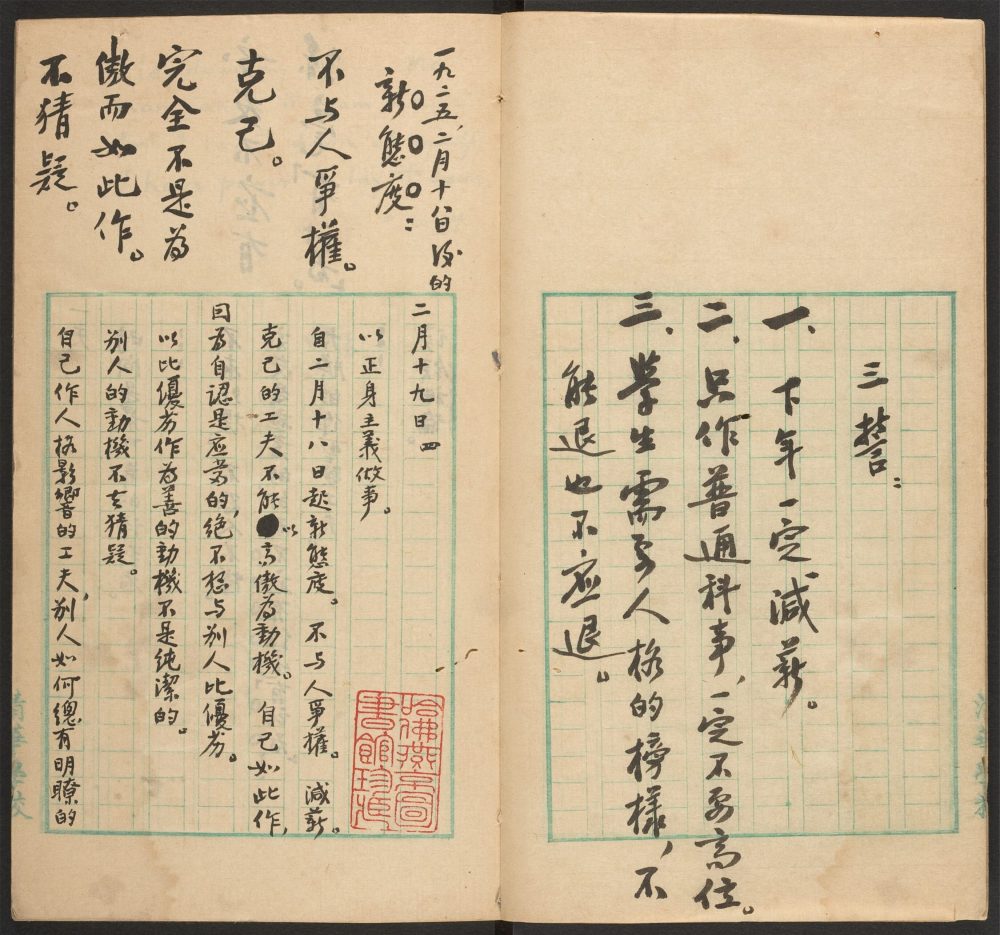 三誓：
一、下年一定減薪。
二、只作普通科事，一定不要高位。
三、學生需要人格的榜樣，不
能退也不应退。
一九二五，二月十八日後的
新態度：
不与人爭權。
克己。
完全不是為
傲而如此作。
不猜疑。
二月十九日 四
以正身主義做事。
自二月十八日起新態度。不与人爭權。減薪。
克己的工夫不能以高傲為動機。自己如此作，
因為自認是应當的，絕不想与別人比優劣。
以比優劣作為善的動機不是純潔的。
別人的動機不去猜疑。
自己作人格影響的工夫，別人如何總有明瞭的
哈佛燕京圖
書館珍藏
清華學校